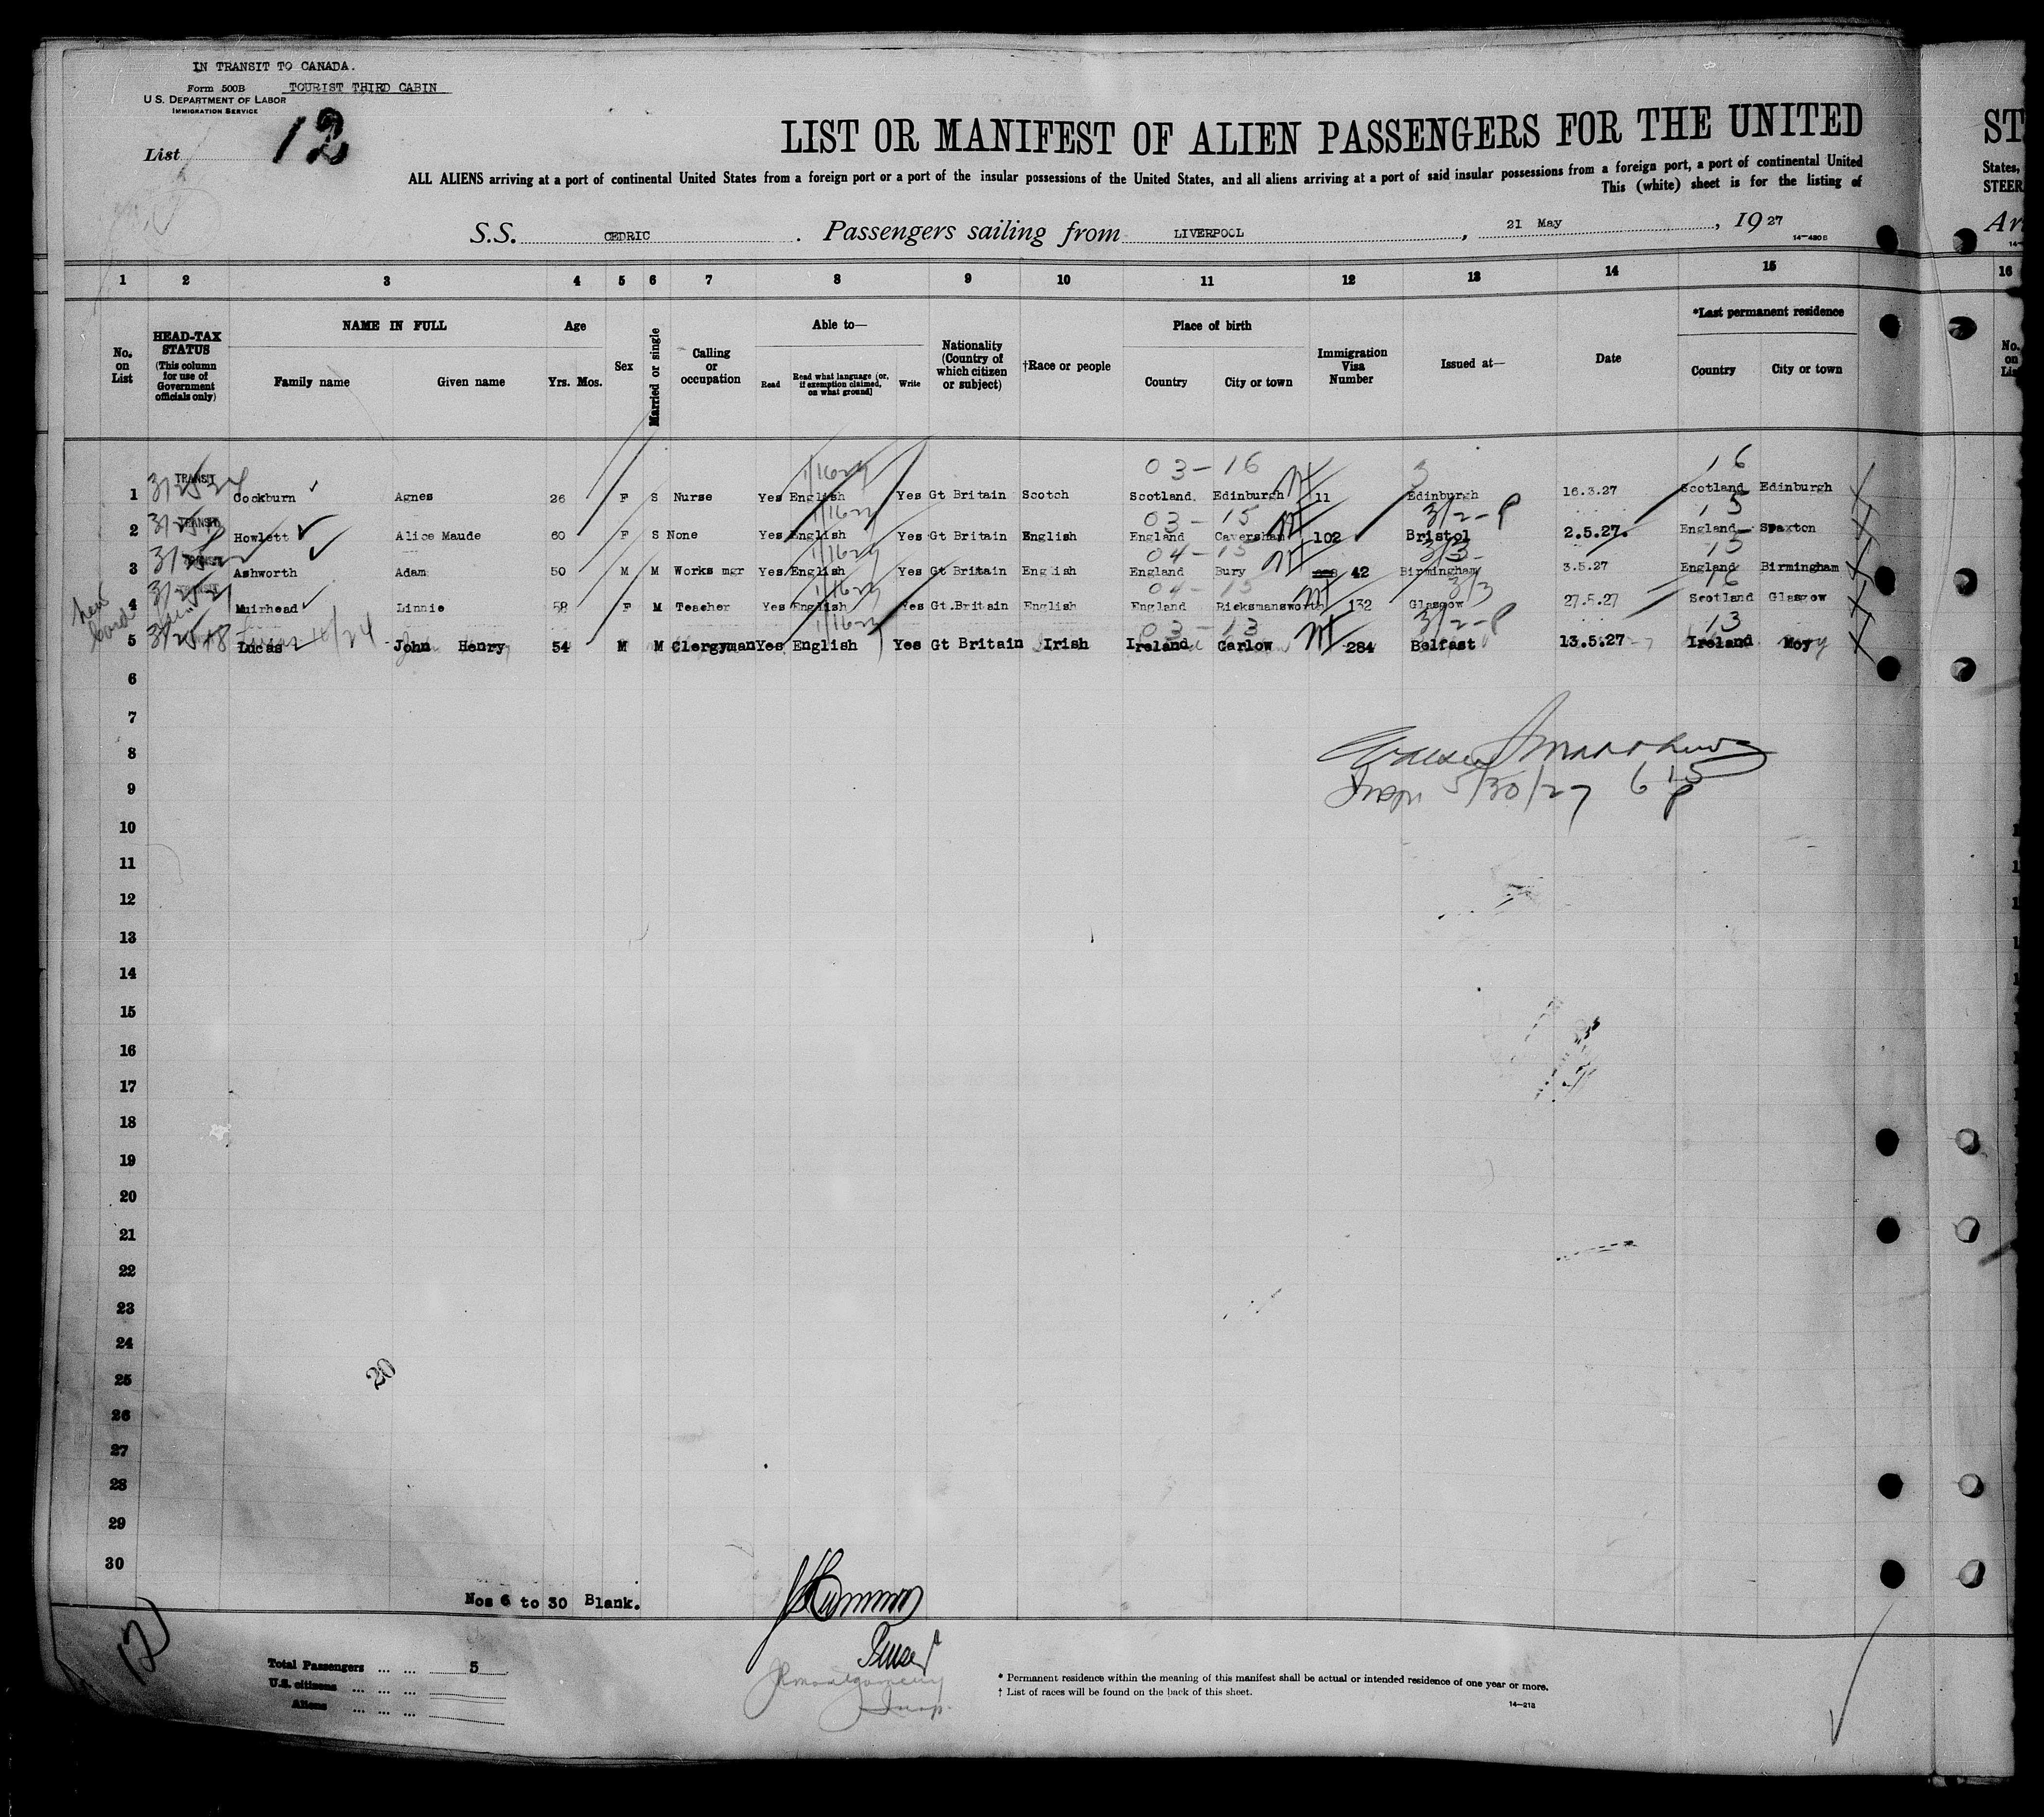 IN TRANSIT TO CANADA.
Form 500B TOURIST THIRD CABIN
U.S. DEPARTMENT OF LABOR
IMMIGRATION SERVICE
List 12
LIST OR MANIFEST OF ALIEN PASSENGERS FOR THE UNITED ST
ALL ALIENS arriving at a port of continental United States from a foreign port or a port of the insular possessions of the United States, and all aliens arriving at a port of said insular possessions from a foreign port, a port of continental United States,
This (white) sheet is for the listing of STEER
S.S. CEDRIC . Passengers sailing from LIVERPOOL , 21 May , 19 27 Ar
14—480 B
1 2 3 4 5 6 7 8 9 10 11 12 13 14 15 16
No. on List
HEAD-TAX STATUS (This column for use of Government officials only)
NAME IN FULL
Family name Given name
Age
Yrs. Mos.
Sex
Married or single
Calling or occupation
Able to—
Read Read what language [or, if exemption claimed, on what ground] Write
Nationality (Country of which citizen or subject)
†Race or people
Place of birth
Country City or town
Immigration Visa Number
Issued at—
Date
*Last permanent residence
Country City or town
No. on Lis
03-16 3 16
1 TRANSIT Cockburn Agnes 26 F S Nurse Yes English Yes Gt Britain Scotch Scotland Edinburgh 11 Edinburgh 16.3.27 Scotland Edinburgh
03-15 3/2-P 15
2 TRANSIT Howlett Alice Maude 60 F S None Yes English Yes Gt Britain English England Caversham 102 Bristol 2.5.27. England Spaxton
04-15 3/3- 15
3 Ashworth Adam 50 M M Works mgr Yes English Yes Gt Britain English England Bury 42 Birmingham 3.5.27 England Birmingham
04-15 3/3 16
4 Muirhead Linnie 58 F M Teacher Yes English Yes Gt.Britain English England Ricksmansworth 132 Glasgow 27.5.27 Scotland Glasgow
03-13 3/2-P 13
5 Lucas John Henry 54 M M Clergyman Yes English Yes Gt Britain Irish Ireland Carlow 284 Belfast 13.5.27 Ireland Moy
6
7
8
9
5/30/27 6 15 P
10
11
12
13
14
15
16
17
18
19
20
21
22
23
24
25
20
26
27
28
29
30
Nos 6 to 30 Blank.
12
Total Passengers ... ... 5
U.S. citizens ... ... ...
Aliens ... ... ...
JR Montgomery
Insp.
* Permanent residence within the meaning of this manifest shall be actual or intended residence of one year or more.
† List of races will be found on the back of this sheet.
14—213